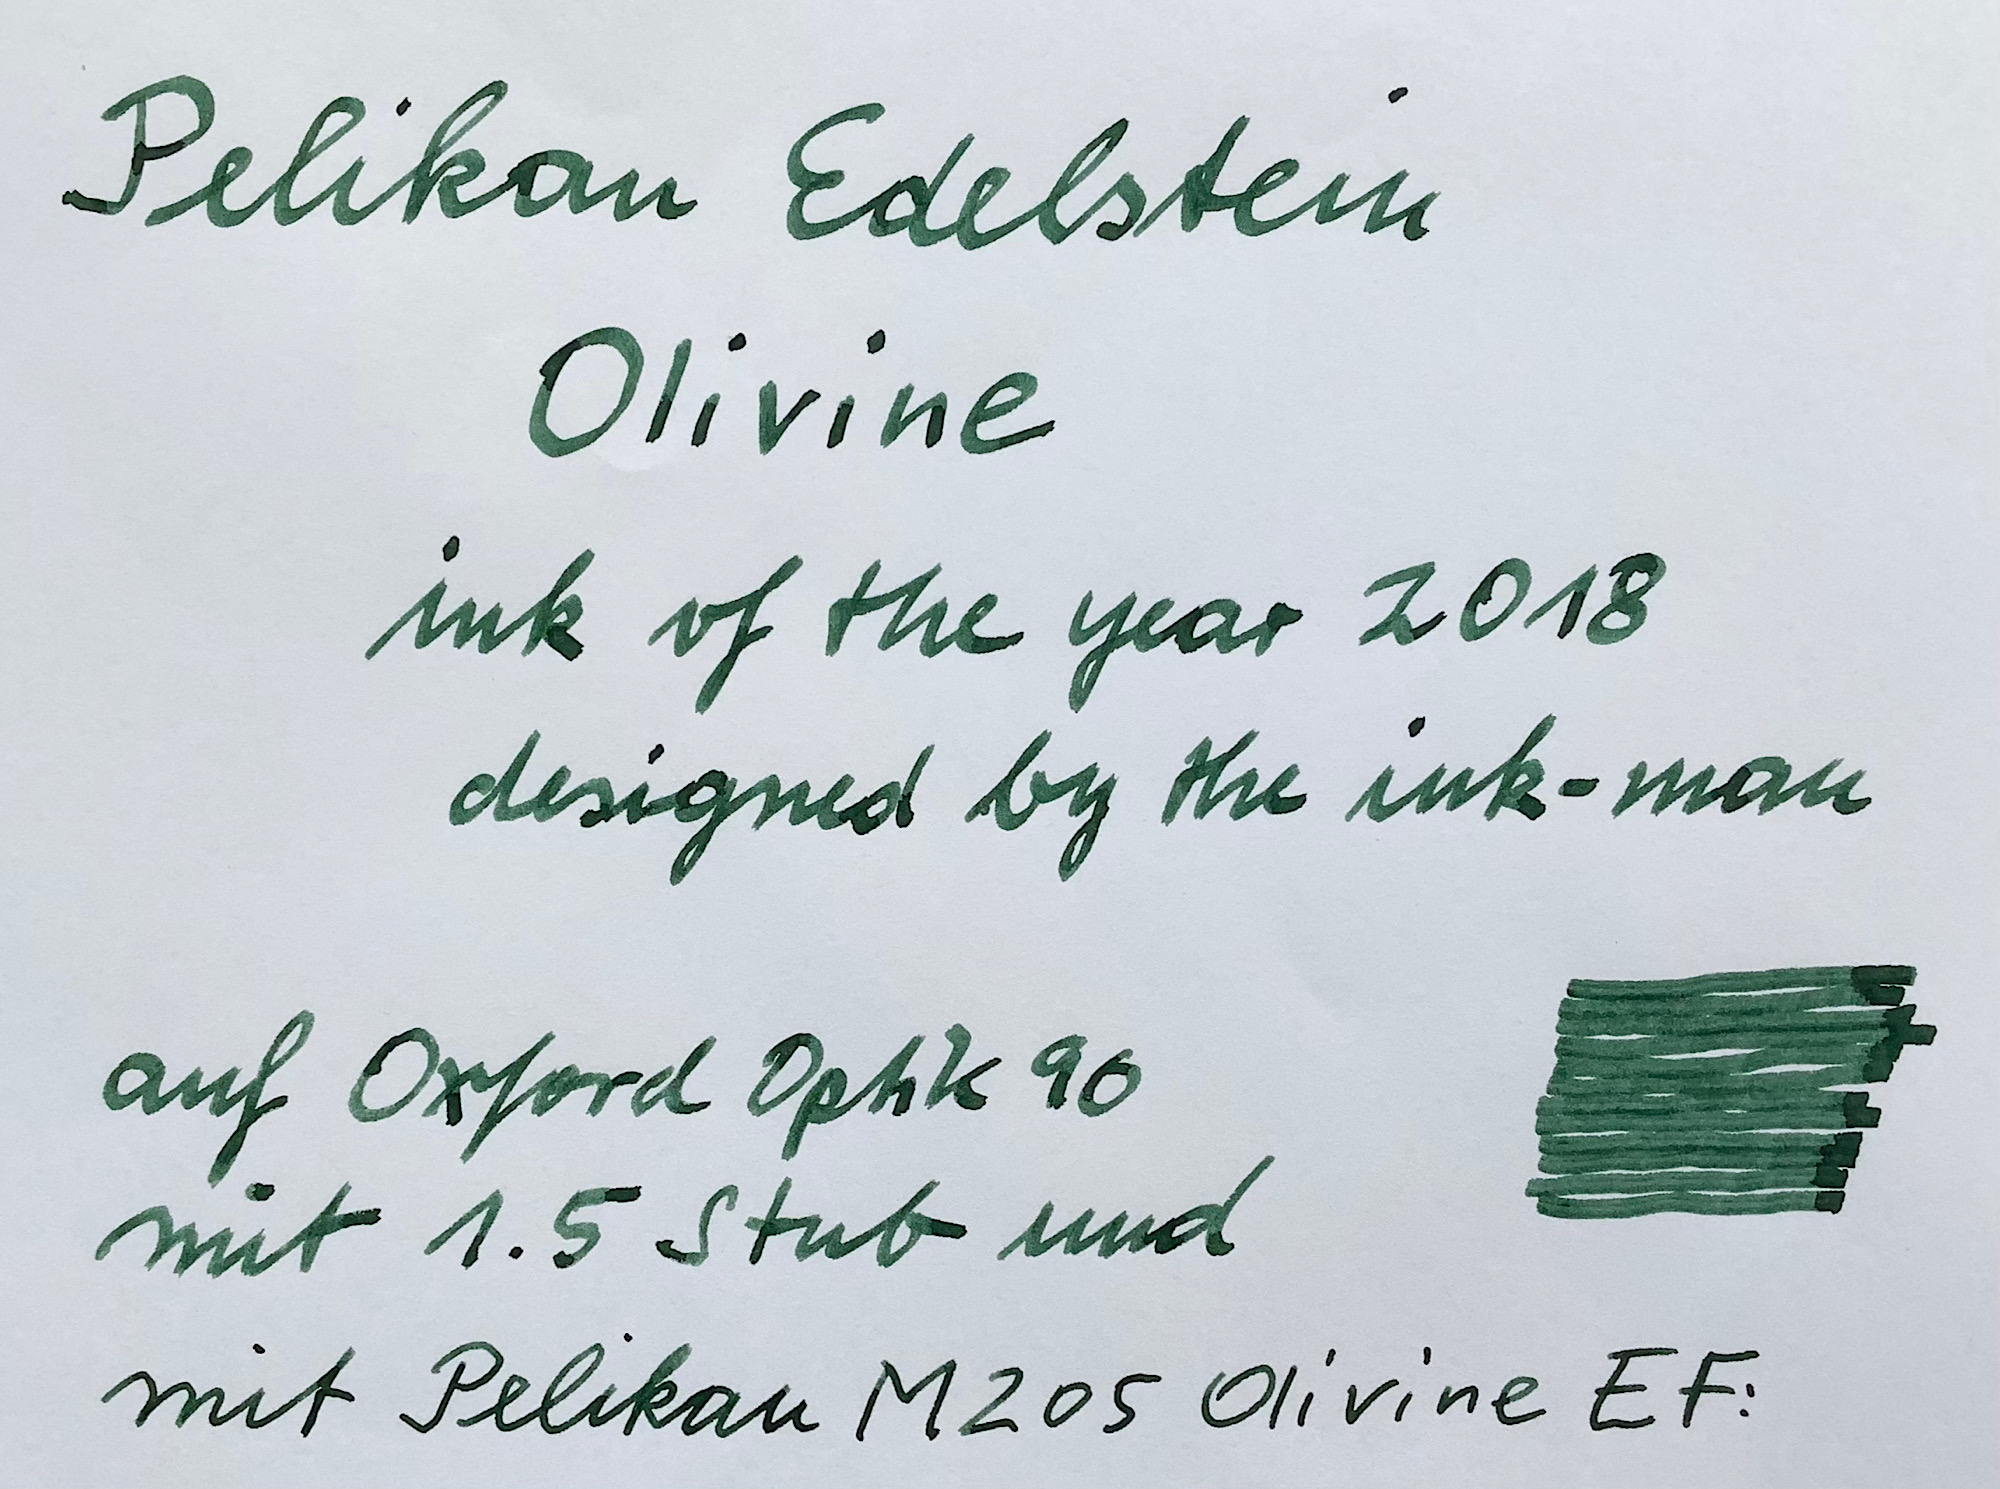 Pelikan Edelstein
Olivine
ink of the year 2018
designed by the ink-man
auf Oxford Optik 90
mit 1.5 Stub und
mit Pelikan M205 Olivine EF: